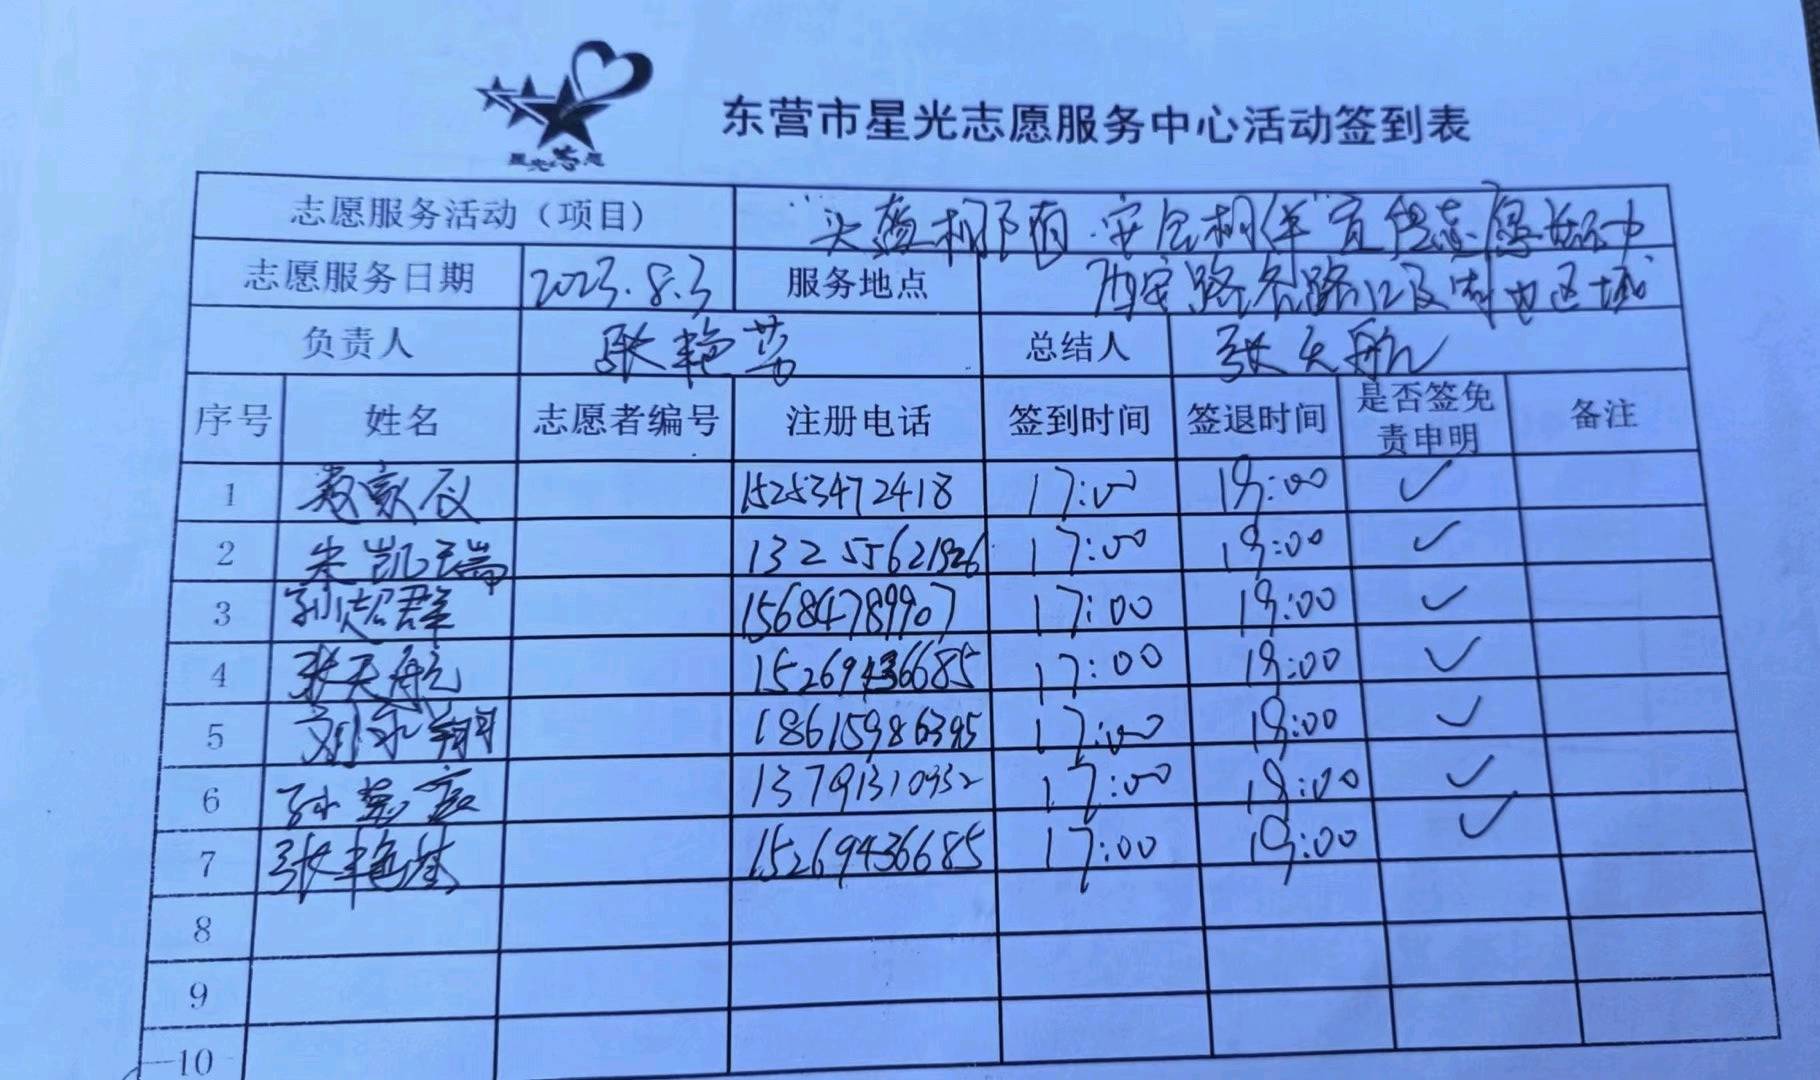 星光志愿
东营市星光志愿服务中心活动签到表
志愿服务活动（项目） "头盔相随·安全相伴"宣传志愿活动
志愿服务日期 2023.8.3 服务地点 西安路各路口及周边区域
负责人 张艳 总结人 张天航
序号 姓名 志愿者编号 注册电话 签到时间 签退时间 是否签免责申明 备注
1 15253472418 17:00 19:00 ✓
2 朱凯瑞 17:00 19:00 ✓
3 孙超群 15684789907 17:00 19:00 ✓
4 张天航 15269436685 17:00 19:00 ✓
5 刘永翔 18615986395 17:00 19:00 ✓
6 孙 13791310932 17:00 19:00 ✓
7 张艳 15269436685 17:00 19:00 ✓
8
9
10